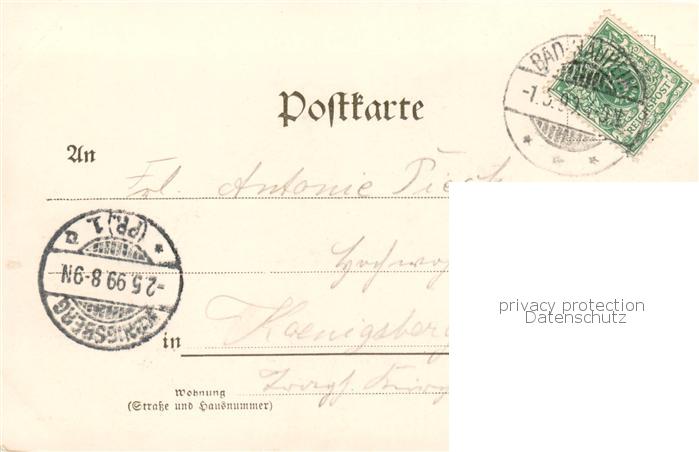 BAD
-1.5.99
REICHSPOST
Postkarte
An
Frl. Antonie
KOENIGSBERG
-2.5.99.8-9N
(PR.) 1. a
in
Koenigsberg
Wohnung
(Straße und Hausnummer)
privacy protection
Datenschutz